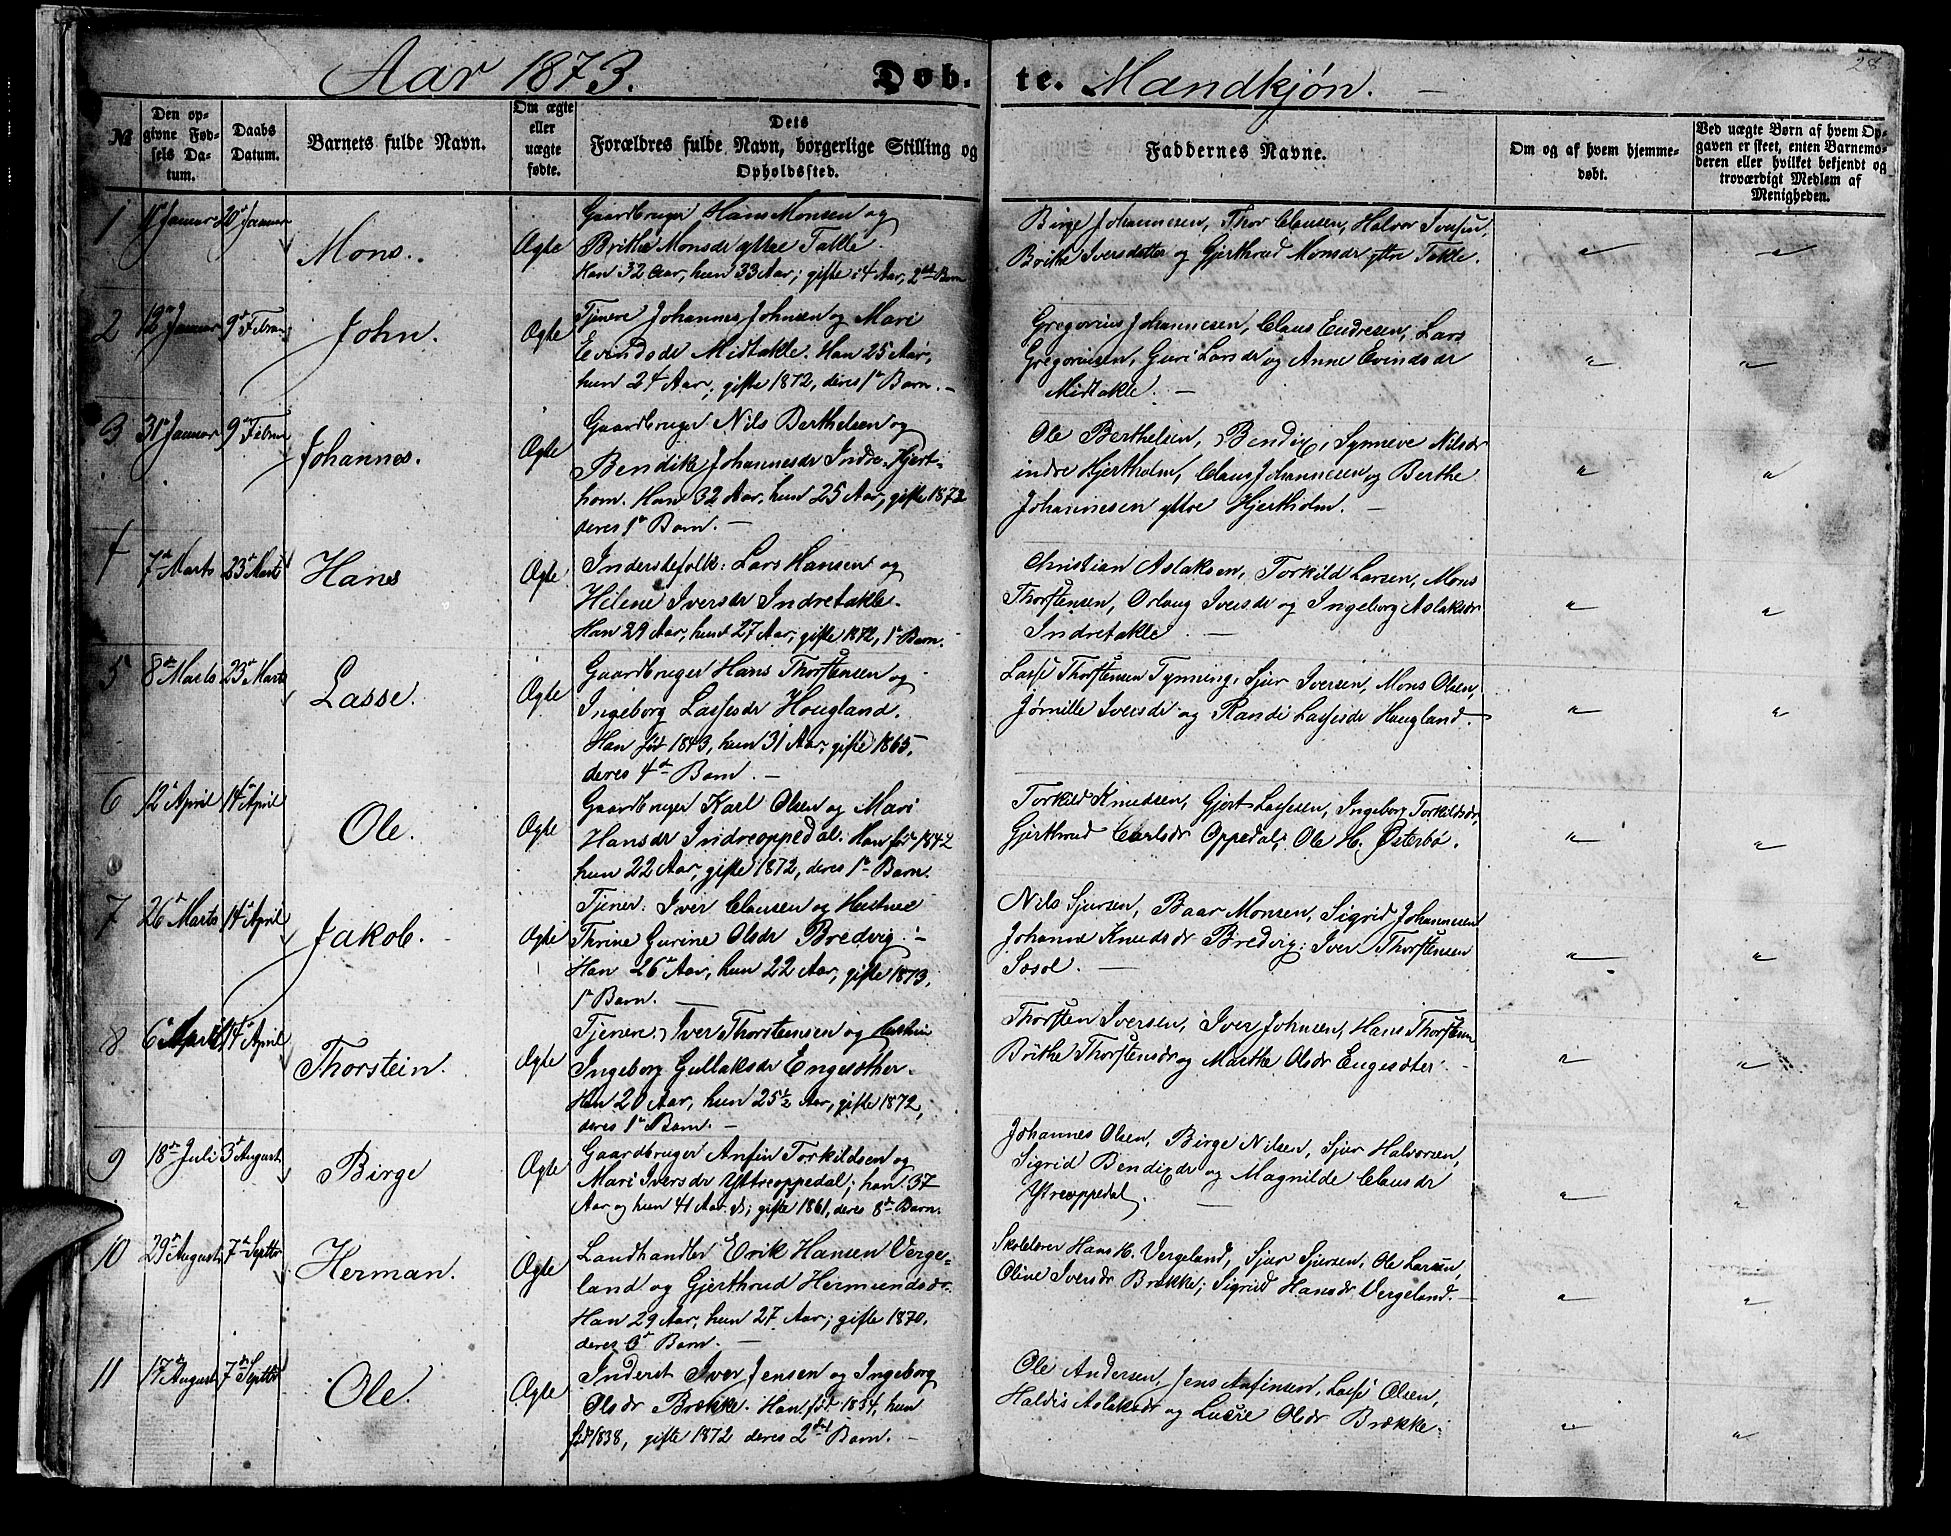 28
Aar 1873. Døb- te. Mandkjøn.
№
Den op-
givne Fød-
sels Da-
tum.
Daabs
Datum.
Barnets fulde Navn.
Om ægte
eller
uægte
fødte.
Dets
Forældres fulde Navn, borgerlige Stilling og
Opholdssted.
Faddernes Navne.
Om og af hvem hjemme-
døbt.
Ved uægte Børn af hvem Op-
gaven er skeet, enten Barnemo-
deren eller hvilket bekjendt og
troværdigt Medlem af
Menigheden.
1 Januar 20 Januar
Mons.
Ægte
Gaardbruger Hans Monsen og
Brithe Monsdr yttre Takle.
Han 32 Aar, hun 33 Aar; gifte i 4 Aar, 2det Barn
Birge Johannesen, Thor Clausen, Halvor Iversen,
Brithe Iversdatter og Gjerthrud Monsdr yttre Takle.
2 12 Januar 9 Februar
John.
Ægte
Tjenere Johannes Johnsen og Mari
Evindsdr Midtakle. Han 25 Aar,
hun 24 Aar; gifte 1872, deres 1ste Barn. —
Gregorius Johannesen, Claus Endresen, Lars
Gregoriusen, Guri Larsdr og Anne Evindsdr
Midtakle. —
3 31 Januar 9 Februar
Johannes.
Ægte
Gaardbruger Nils Berthelsen og
Bendike Johannesdr Indre Hjert-
hom. Han 32 Aar, hun 25 Aar, gifte 1872
deres 1ste Barn. —
Ole Berthelsen, Bendix, Synneve Nilsdr
indre Hjertholm, Claus Johannesen og Berthe
Johannesen yttre Hjertholm. —
4 7de Marts 23de Marts
Hans
Ægte
Inderstefolk: Lars Hansen og
Helene Iversdr Indretakle.
Han 29 Aar, hun 27 Aar, gifte 1872, 1ste Barn.
Christian Aslaksen, Torkild Larsen, Mons
Thorstensen, Orlaug Iversdr og Ingeborg Aslaksdr
Indretakle. —
5 8de Marts 23de Marts
Lasse.
Ægte
Gaardbruger Hans Thorstensen og
Ingeborg Lassesdr Hougland.
Han født 1843, hun 31 Aar, gifte 1865,
deres 4de Barn. —
Lasse Thorstensen Tynning, Sjur Iversen, Mons Olsen,
Jørnille Iversdr og Randi Lassesdr Haugland. —
6 12 April 14 April
Ole.
Ægte
Gaardbruger Karl Olsen og Mari
Hansdr Indreoppedal. Han født 1842
hun 22 Aar, gifte 1872, deres 1ste Barn.
Torkild Knudsen, Gjert Lassesen, Ingeborg Torkildsdr,
Gjerthrud Carlsdr Oppedal, Ole H. Østerbø.
7 26 Marts 14 April
Jakob.
Ægte
Tjener: Iver Clausen og Hustrue
Thrine Gurine Olsdr Bredvig. —
Han 26 Aar, hun 22 Aar, gifte 1873,
1ste Barn. —
Nils Sjursen, Baar Monsen, Sigrid Johannesen
Johanne Knudsdr Bredvig; Iver Thorstensen
—
8 6 April 14 April
Thorstein.
Ægte
Tjenere: Iver Thorstensen og Hustrue
Ingeborg Gullaksdr Engesæther.
Han 20 Aar, hun 25½ Aar, gifte 1872,
deres 1ste Barn. —
Thorsten Iversen, Iver Johnsen, Hans Thorsten
Brithe Thorstensdr og Marthe Olsdr Engesæter
9 18de Juli 3 August
Birge
Ægte
Gaardbruger Anfin Torkildsen og
Mari Iversdr Yttreoppedal; han 37
Aar og hun 41 Aar; gifte 1861, deres 8de Barn.
Johannes Olsen, Birge Nilsen, Sjur Halvorsen,
Sigrid Bendixdr og Magnilde Clausdr
Ytreoppedal. —
10 29 August 7de Septbr
Herman.
Ægte
Landhandler Erik Hansen Verge-
land og Gjerthrud Hermundsdr.
Han 29 Aar, hun 27 Aar; gifte 1870,
deres 3 Barn. —
Skolelærer Hans H. Vergeland, Sjur Sjursen, Ole Larsen,
Oline Iversdr Brække, Sigrid Hansdr Vergeland. —
11 17de August 7de Septbr
Ole.
Ægte
Inderst Iver Jensen og Ingeborg
Olsdr Brække. Han født 1834, hun
født 1838, gifte 1872 deres 2det Barn. —
Ole Andersen, Jens Anfinsen, Lasse Olsen,
Haldis Aslaksdr og Lucie Olsdr Brække.